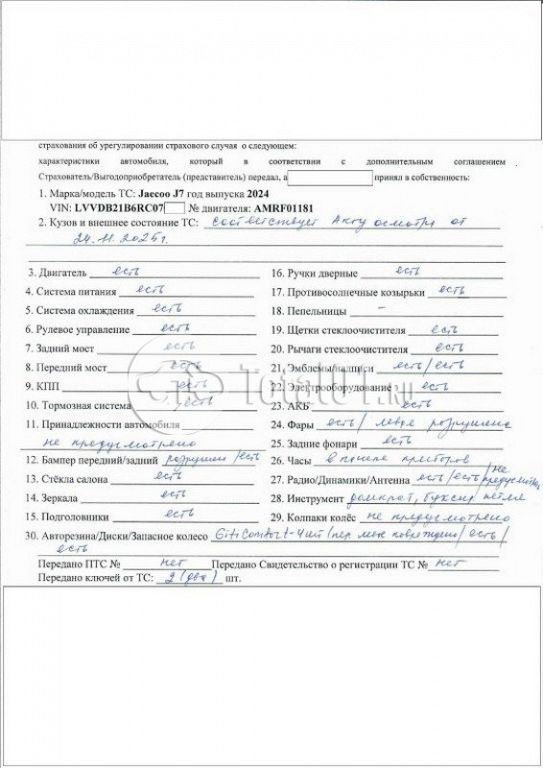 страхования об урегулировании страхового случая о следующем:
характеристики автомобиля, который в соответствии с дополнительным соглашением
Страхователь/Выгодоприобретатель (представитель) передал, а принял в собственность:
1. Марка/модель ТС: Jaecoo J7 год выпуска 2024
VIN: LVVDB21B6RC07 № двигателя: AMRF01181
2. Кузов и внешнее состояние ТС: соответствует Акту осмотра от
24.11.2025г.
3. Двигатель есть
4. Система питания есть
5. Система охлаждения есть
6. Рулевое управление есть
7. Задний мост есть
8. Передний мост есть
9. КПП есть
10. Тормозная система есть
11. Принадлежности автомобиля
не предусмотрено
12. Бампер передний/задний разрушен/есть
13. Стёкла салона есть
14. Зеркала есть
15. Подголовники есть
16. Ручки дверные есть
17. Противосолнечные козырьки есть
18. Пепельницы –
19. Щетки стеклоочистителя есть
20. Рычаги стеклоочистителя есть
21. Эмблемы/надписи есть/есть
22. Электрооборудование есть
23. АКБ есть
24. Фары есть/ левая разрушена
25. Задние фонари есть
26. Часы в панели приборов
27. Радио/Динамики/Антенна есть/есть/не предусмотрена
28. Инструмент домкрат, буксир петля
29. Колпаки колёс не предусмотрено
30. Авторезина/Диски/Запасное колесо GitiComfort-4шт (пер лев повреждено/есть/
есть
Передано ПТС № нет Передано Свидетельство о регистрации ТС № нет
Передано ключей от ТС: 2 (два) шт.
Total01.ru